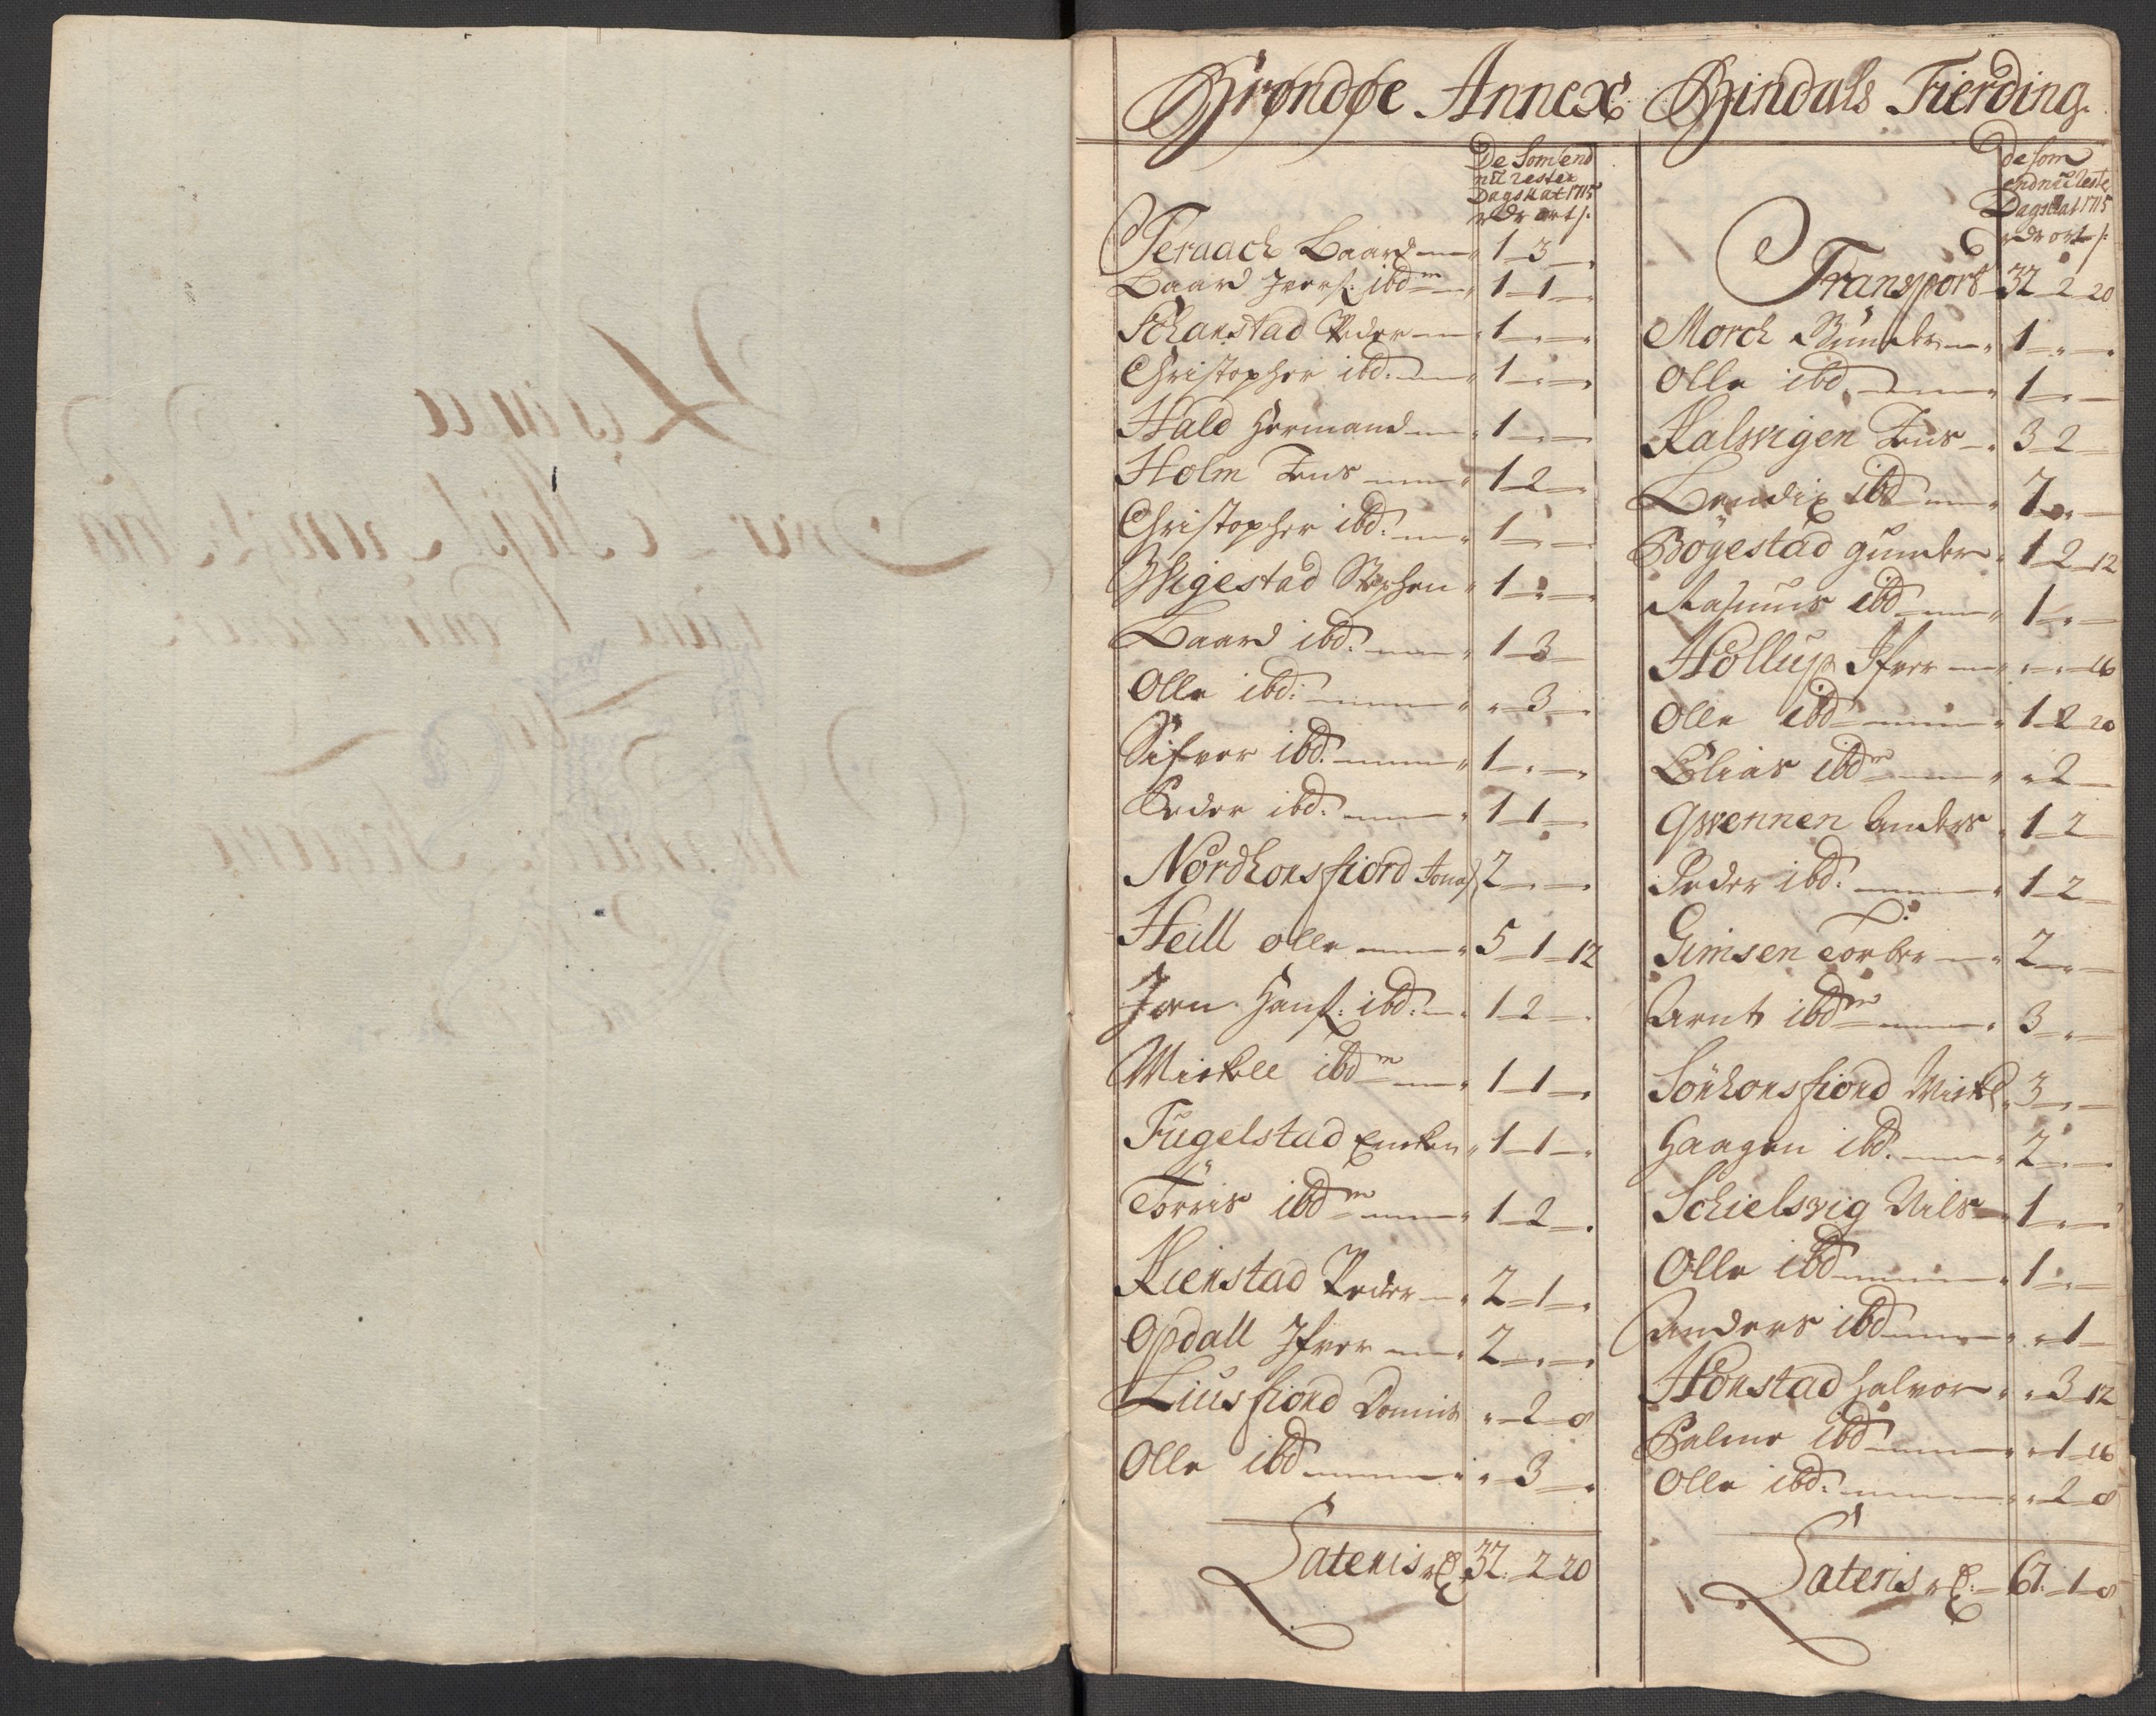 Brøndøe Annex Bindals Fierding.
De Som end
nu rester
Dagskat 1715
rdr ort s.
Teraach Baard 1 3
Baard Iversøn ibdm 1 1
Schanstad Peder 1
Christopher ibd. 1
Hald Hermand 1
Holm Jens 1 2
Christopher ibd. 1
Wigestad Stephen 1
Baard ibd. 1 3
Olle ibd: 3
Sifver ibd. 1
Peder ibd. 1 1
Nordhorsfiord Jonas 2
Heill olle 5 1 12
Jørn Hanss: ibd: 1 2
Mickell ibdm 1 1
Fugelstad 1 1
Törris ibdm 1 2
Kienstad Peder 2 1
Opdall Ifver 2
Liusfiord 2 8
Olle ibd 3
Lateris rd 32. 2 20
de som
endnu Reste
Dagskat 1715
rdr ort s:
Transport 32 2 20
Morch Gunder 1
Olle ibd. 1
Kalsvigen Jens 3 2
Bendix ibd 7
Bögestad gunder 1 2 12
Rasmus ibd 1
Hollup Ifver 16
Olle ibd 1 2 20
Elias ibdm 2
Qwennen Anders 1 2
Peder ibd. 1 2
Gimsen Torber 2
Arnt ibdm 3
Sörhorsfiord Mickel 3
Haagen ibd. 2
Schielsvig Nils 1
Olle ibd 1
Anders ibd 1
Horstad Halvor 3 12
Palme ibd 1 16
Olle ibd: 2 8
Lateris rd: 67. 1 8